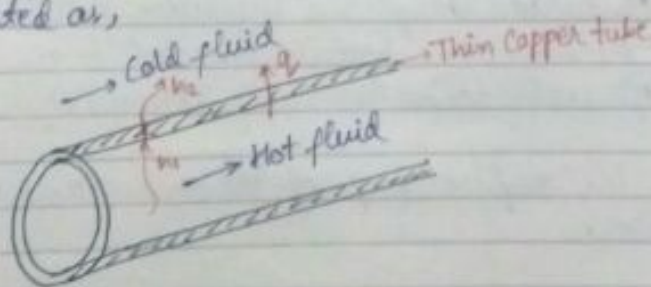 ted as,
Cold fluid
h2
q
Thin Copper tube
h1
Hot fluid